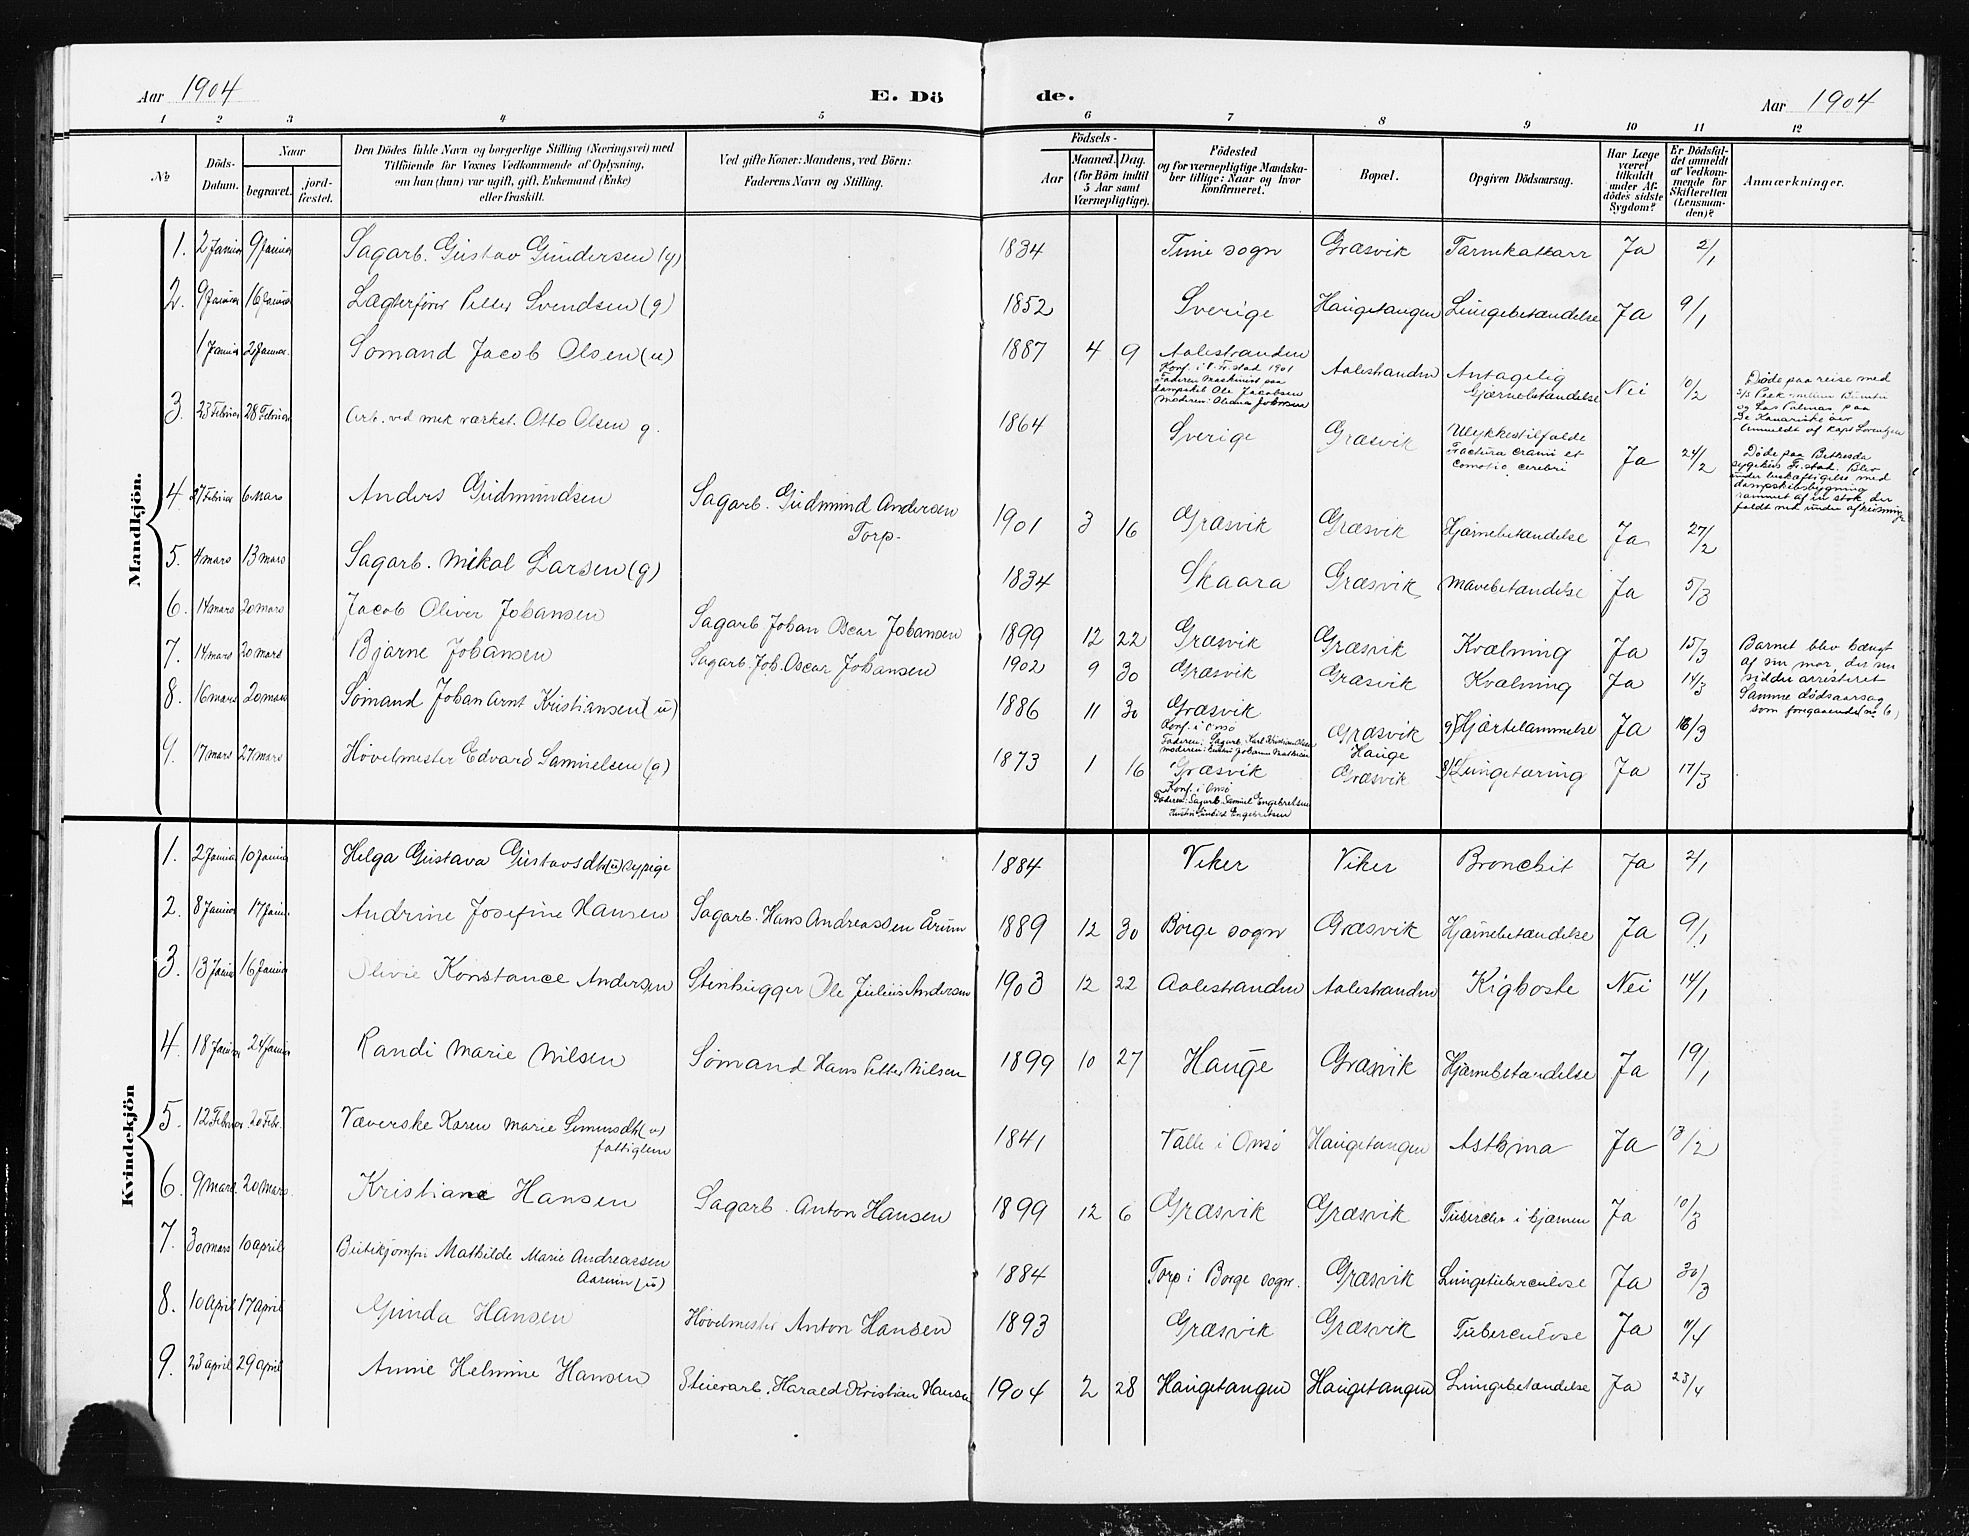 Aar 1904
E. Dö de.
Aar 1904
1 2 3 4 5 6 7 8 9 10 11 12
No
Döds-Datum.
Naar
begravet.
jord-fæstet.
Den Dödes fulde Navn og borgerlige Stilling (Næringsvei) med
Tilföiende for Voxnes Vedkommende af Oplysning,
om han (hun) var ugift, gift, Enkemand (Enke)
eller fraskilt.
Ved gifte Koner: Mandens, ved Börn:
Faderens Navn og Stilling.
Födsels-
Aar
Maaned. Dag.
(for Börn indtil
5 Aar samt
Værnepligtige).
Födested
og for værnepligtige Mandska-
ber tillige: Naar og hvor
konfirmeret.
Bopæl.
Opgiven Dödsaarsag.
Har Læge
været
tilkaldt
under Af-
dödes sidste
Sygdom?
Er Dödsfal-
det anmeldt
af Vedkom-
mende for
Skifteretten
(Lensman-
den)?
Anmærkninger.
Mandkjön.
1. 2 Januar 9 Januar Sagarb. Gustav Gundersen (g) 1834 Tune sogn Græsvik Tarmkattarr Ja 2/1
2. 9 Januar 16 Januar Lægterfører Petter Svendsen (g) 1852 Sverige Haugetangen Lungebetændelse Ja 9/1
1 Januar 2 Januar Sømand Jacob Olsen (u) 1887 4 9 Aalestranden
Konf. i F.stad 1901
Faderen Maskinist paa
dampskib Ole Jacobsen
Moderen:
Aalestranden Antagelig
Hjærnebetændelse Nei 10/2
Døde paa reise med
og Las Palmas, paa
De Kanariske øer
Anmeldt af Kapt Lorentzen
3. 23 Februar 28 Februar Arb. ved mek værkst. Otto Olsen g. 1864 Sverige Græsvik Ulykkestilfælde
Fractura cranii et
comotio cerebri Ja 24/2
Døde paa Bethesda
sygehus Fr.stad. Blev
under beskæftigelse med
dampskibsbygning
rammet af en stok der
faldt ned under
4 27 Februar 6 Mars Anders Gudmundsen Sagarb. Gudmund Andersen
Torp. 1901 3 16 Græsvik Græsvik Hjærnebetændelse Ja 27/2
5. 4 mars 13 mars Sagarb. Mikal Larsen (g) 1834 Skaara Græsvik Mavebetændelse Ja 5/3
6. 14 mars 20 mars Jacob Oliver Johansen Sagarb Johan Oscar Johansen 1899 12 22 Græsvik Græsvik Kvælning Ja 15/3
Barnet blev hængt
af sin mor, der nu
sidder arresteret
7. 14 mars 20 mars Bjarne Johansen Sagarb. Joh. Oscar Johansen 1902 9 30 Græsvik Græsvik Kvælning Ja 14/3
Samme dødsaarsag
som foregaaende (no 6)
8. 16 mars 20 mars Sømand Johan Arnt Kristiansen (u) 1886 11 30 Græsvik
Konf. i Onsø
Faderen: Sagarb. Karl Kristian Olsen
Græsvik Hjærtelammelse Ja 16/3
9. 17 mars 27 mars Høvelmester Edvard Samuelsen (g) 1873 1 16 Græsvik
Konf. i Onsø
Faderen: Sagarb. Samuel Engebretsen
Hauge
Græsvik Lungetæring Ja 17/3
Kvindekjön
1. 2 Januar 10 Januar Helga Gustava Gustavsdtr (u) sypige 1884 Viker Viker Bronchit Ja 2/1
2. 8 Januar 17 Janu. Andrine Josefine Hansen Sagarb. Hans Andreassen Årum 1889 12 30 Borge sogn Græsvik Hjærnebetændelse Ja 9/1
3. 13 Janua 16 Januar Olivie Konstance Andersen Stenhugger Ole Julius Andersen 1903 12 22 Aalestranden Aalestranden Kighoste Nei 14/1
4. 18 Januar 24 Januar Randi Marie Nilsen Sømand Hans Petter Nilsen 1899 10 27 Hauge Græsvik Hjærnebetændelse Ja 19/1
5. 12 Februar 20 Febr. Væverske Karen Marie Simensdtr (u)
fattiglem 1841 Valle i Onsø Haugetangen Asthma Ja 13/2
6. 9 Mars. 20 Mars. Kristiane Hansen Sagarb. Anton Hansen 1899 12 6 Græsvik Græsvik Tuberclr i hjærnen Ja 10/3
7. 30 mars 10 april Butikjomfru Mathilde Marie Andreassen
Aarum (u) 1884 Torp i Borge sogn. Græsvik Lungetuberculose Ja 30/3
8. 10 April 17 April Gunda Hansen Høvelmester Anton Hansen 1893 Græsvik Græsvik Tuberculose Ja 11/4
9. 23 april 29 april Anne Helmine Hansen Stuerarb. Harald Kristian Hansen 1904 2 28 Haugetangen Haugetangen Lungebetændelse Ja 23/4